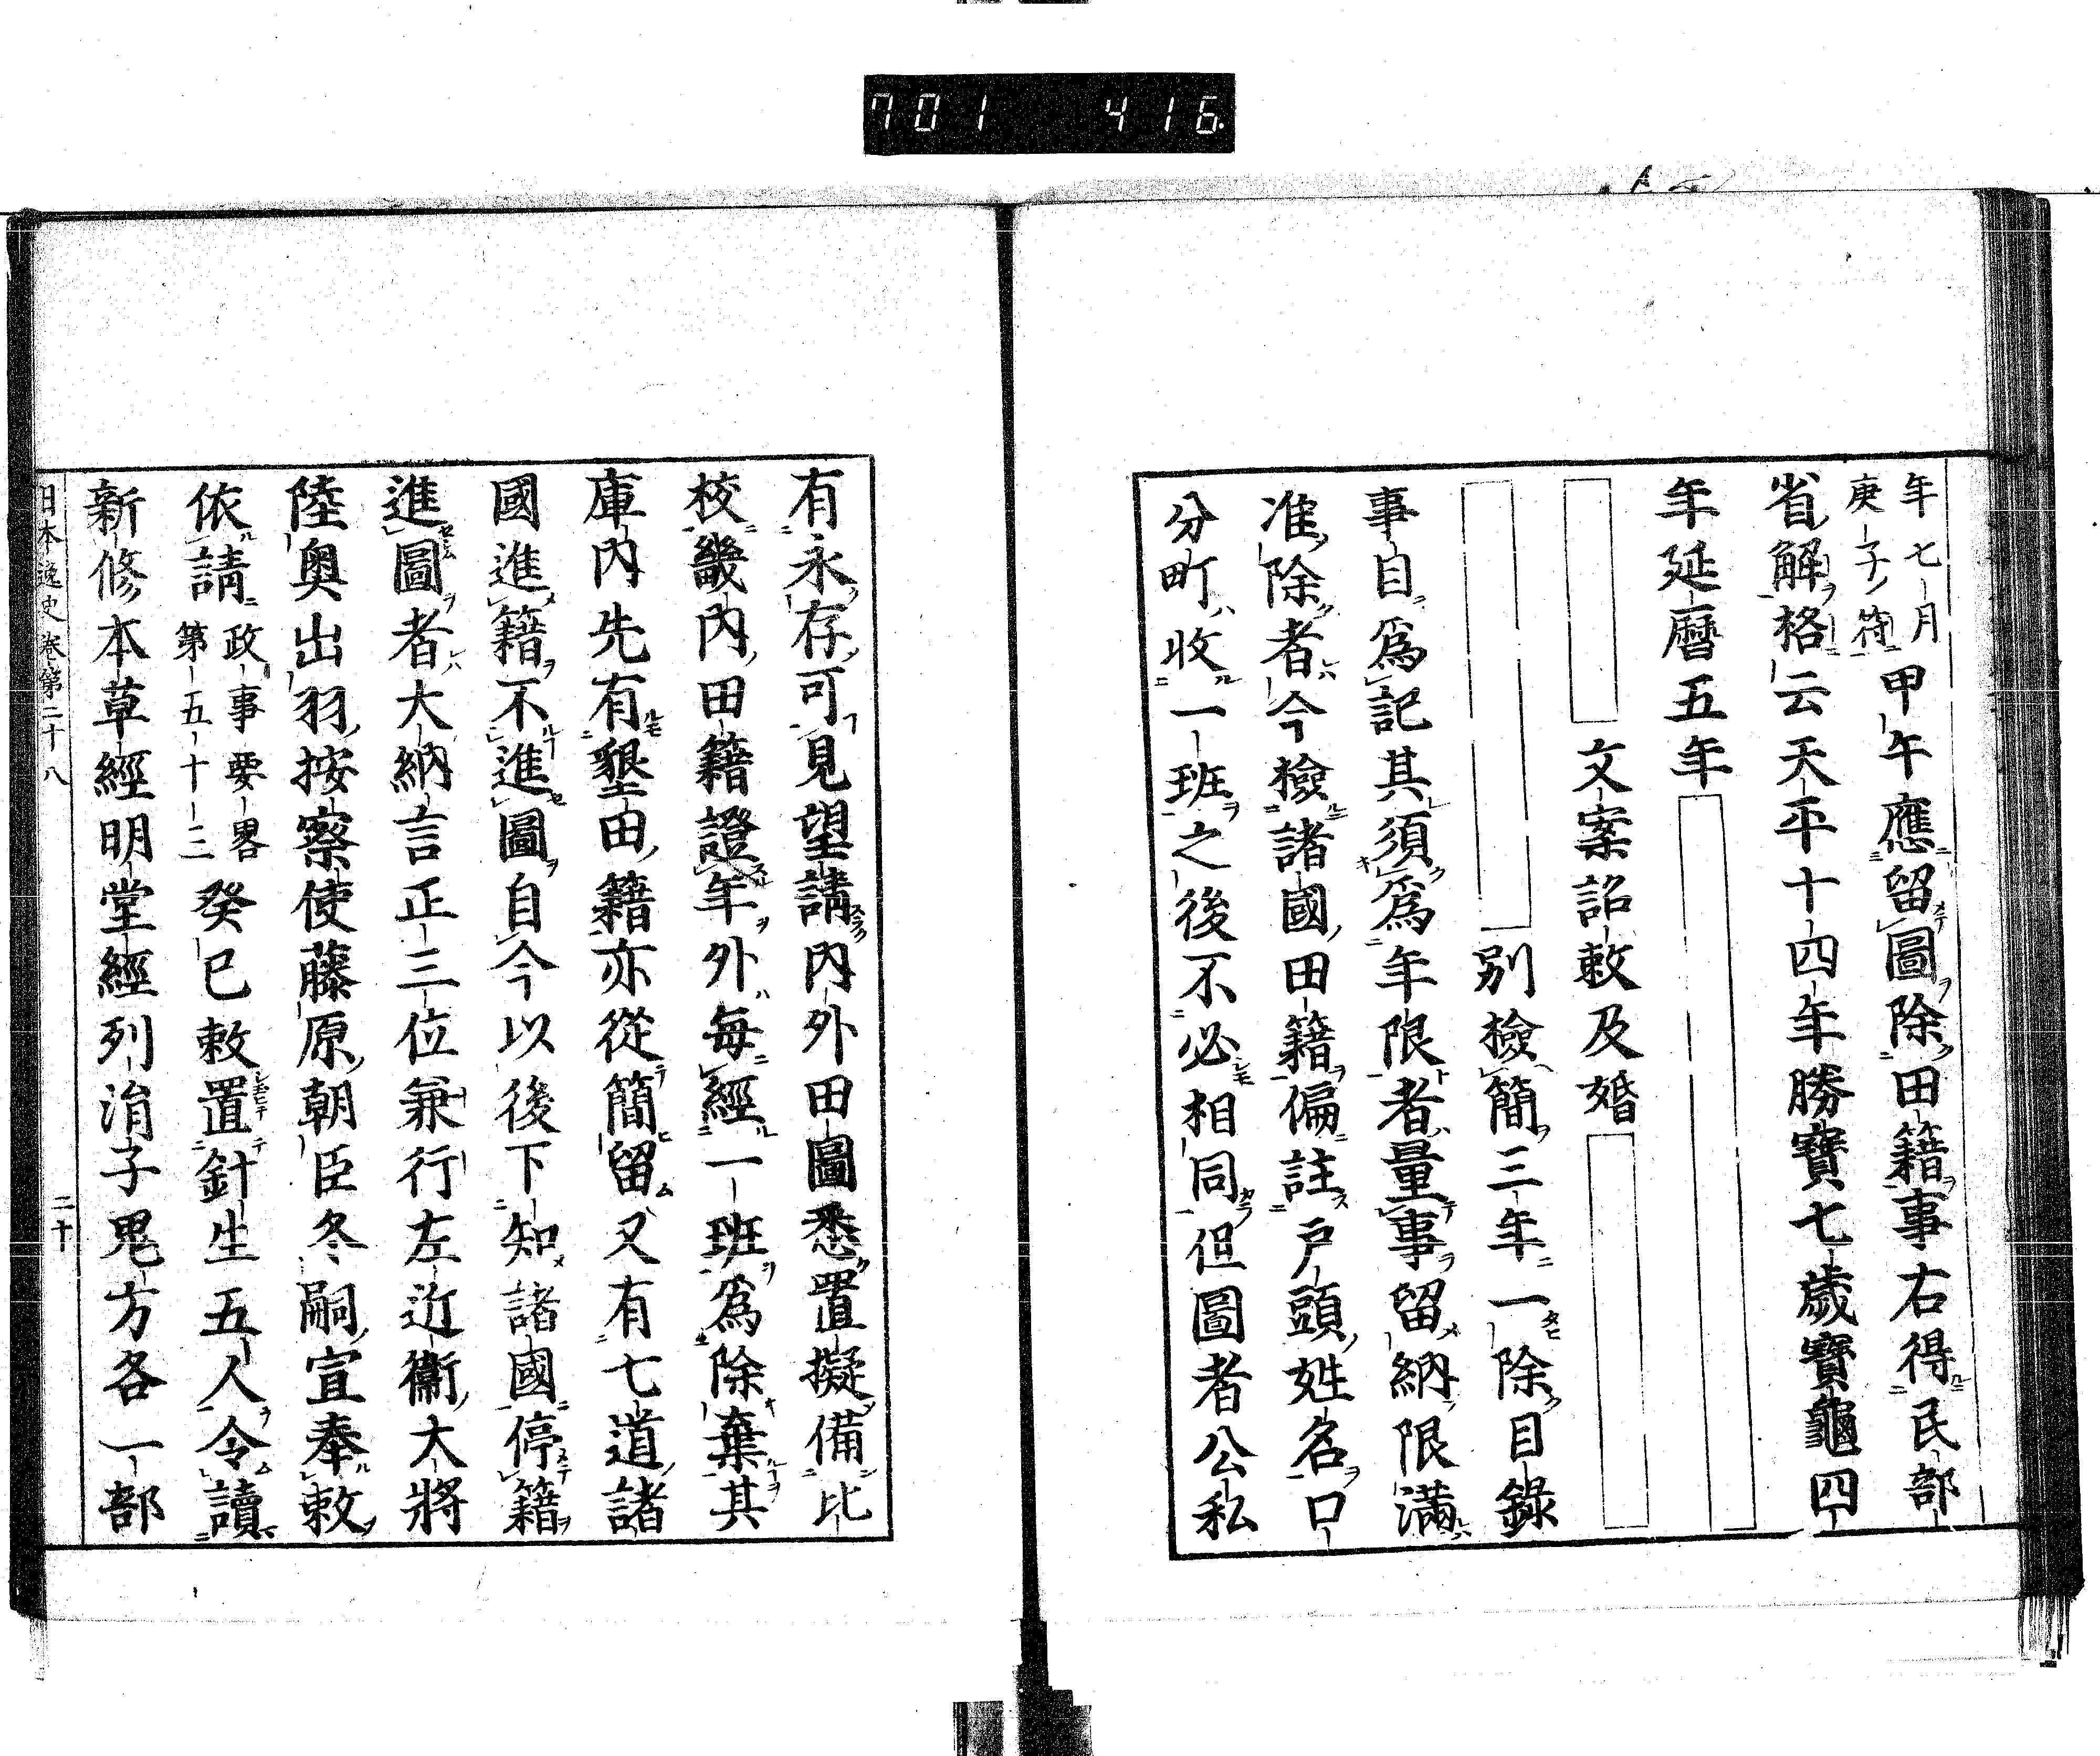 701 416
年七月
庚子符
甲午應留圖除田籍事右得民部
省解格云天平十四年勝寶七歲寶龜四
年延曆五年
文案詔敕及婚
別檢簡三年一除目錄
事目爲記其須爲年限者量事留納限滿
准除者今檢諸國田籍偏註戶頭姓名口
分町收一班之後不必相同但圖者公私
有永存可見望請內外田圖悉置擬備比
校畿內田籍證年外每經一班爲除棄其
庫內先有墾田籍亦從簡留又有七道諸
國進籍不進圖自今以後下知諸國停籍
進圖者大納言正三位兼行左近衞大將
陸奧出羽按察使藤原朝臣冬嗣宣奉敕
依請
政事要畧
第五十三
癸巳敕置針生五人令讀
新修本草經明堂經列涓子鬼方各一部
日本逸史卷第二十八
二十